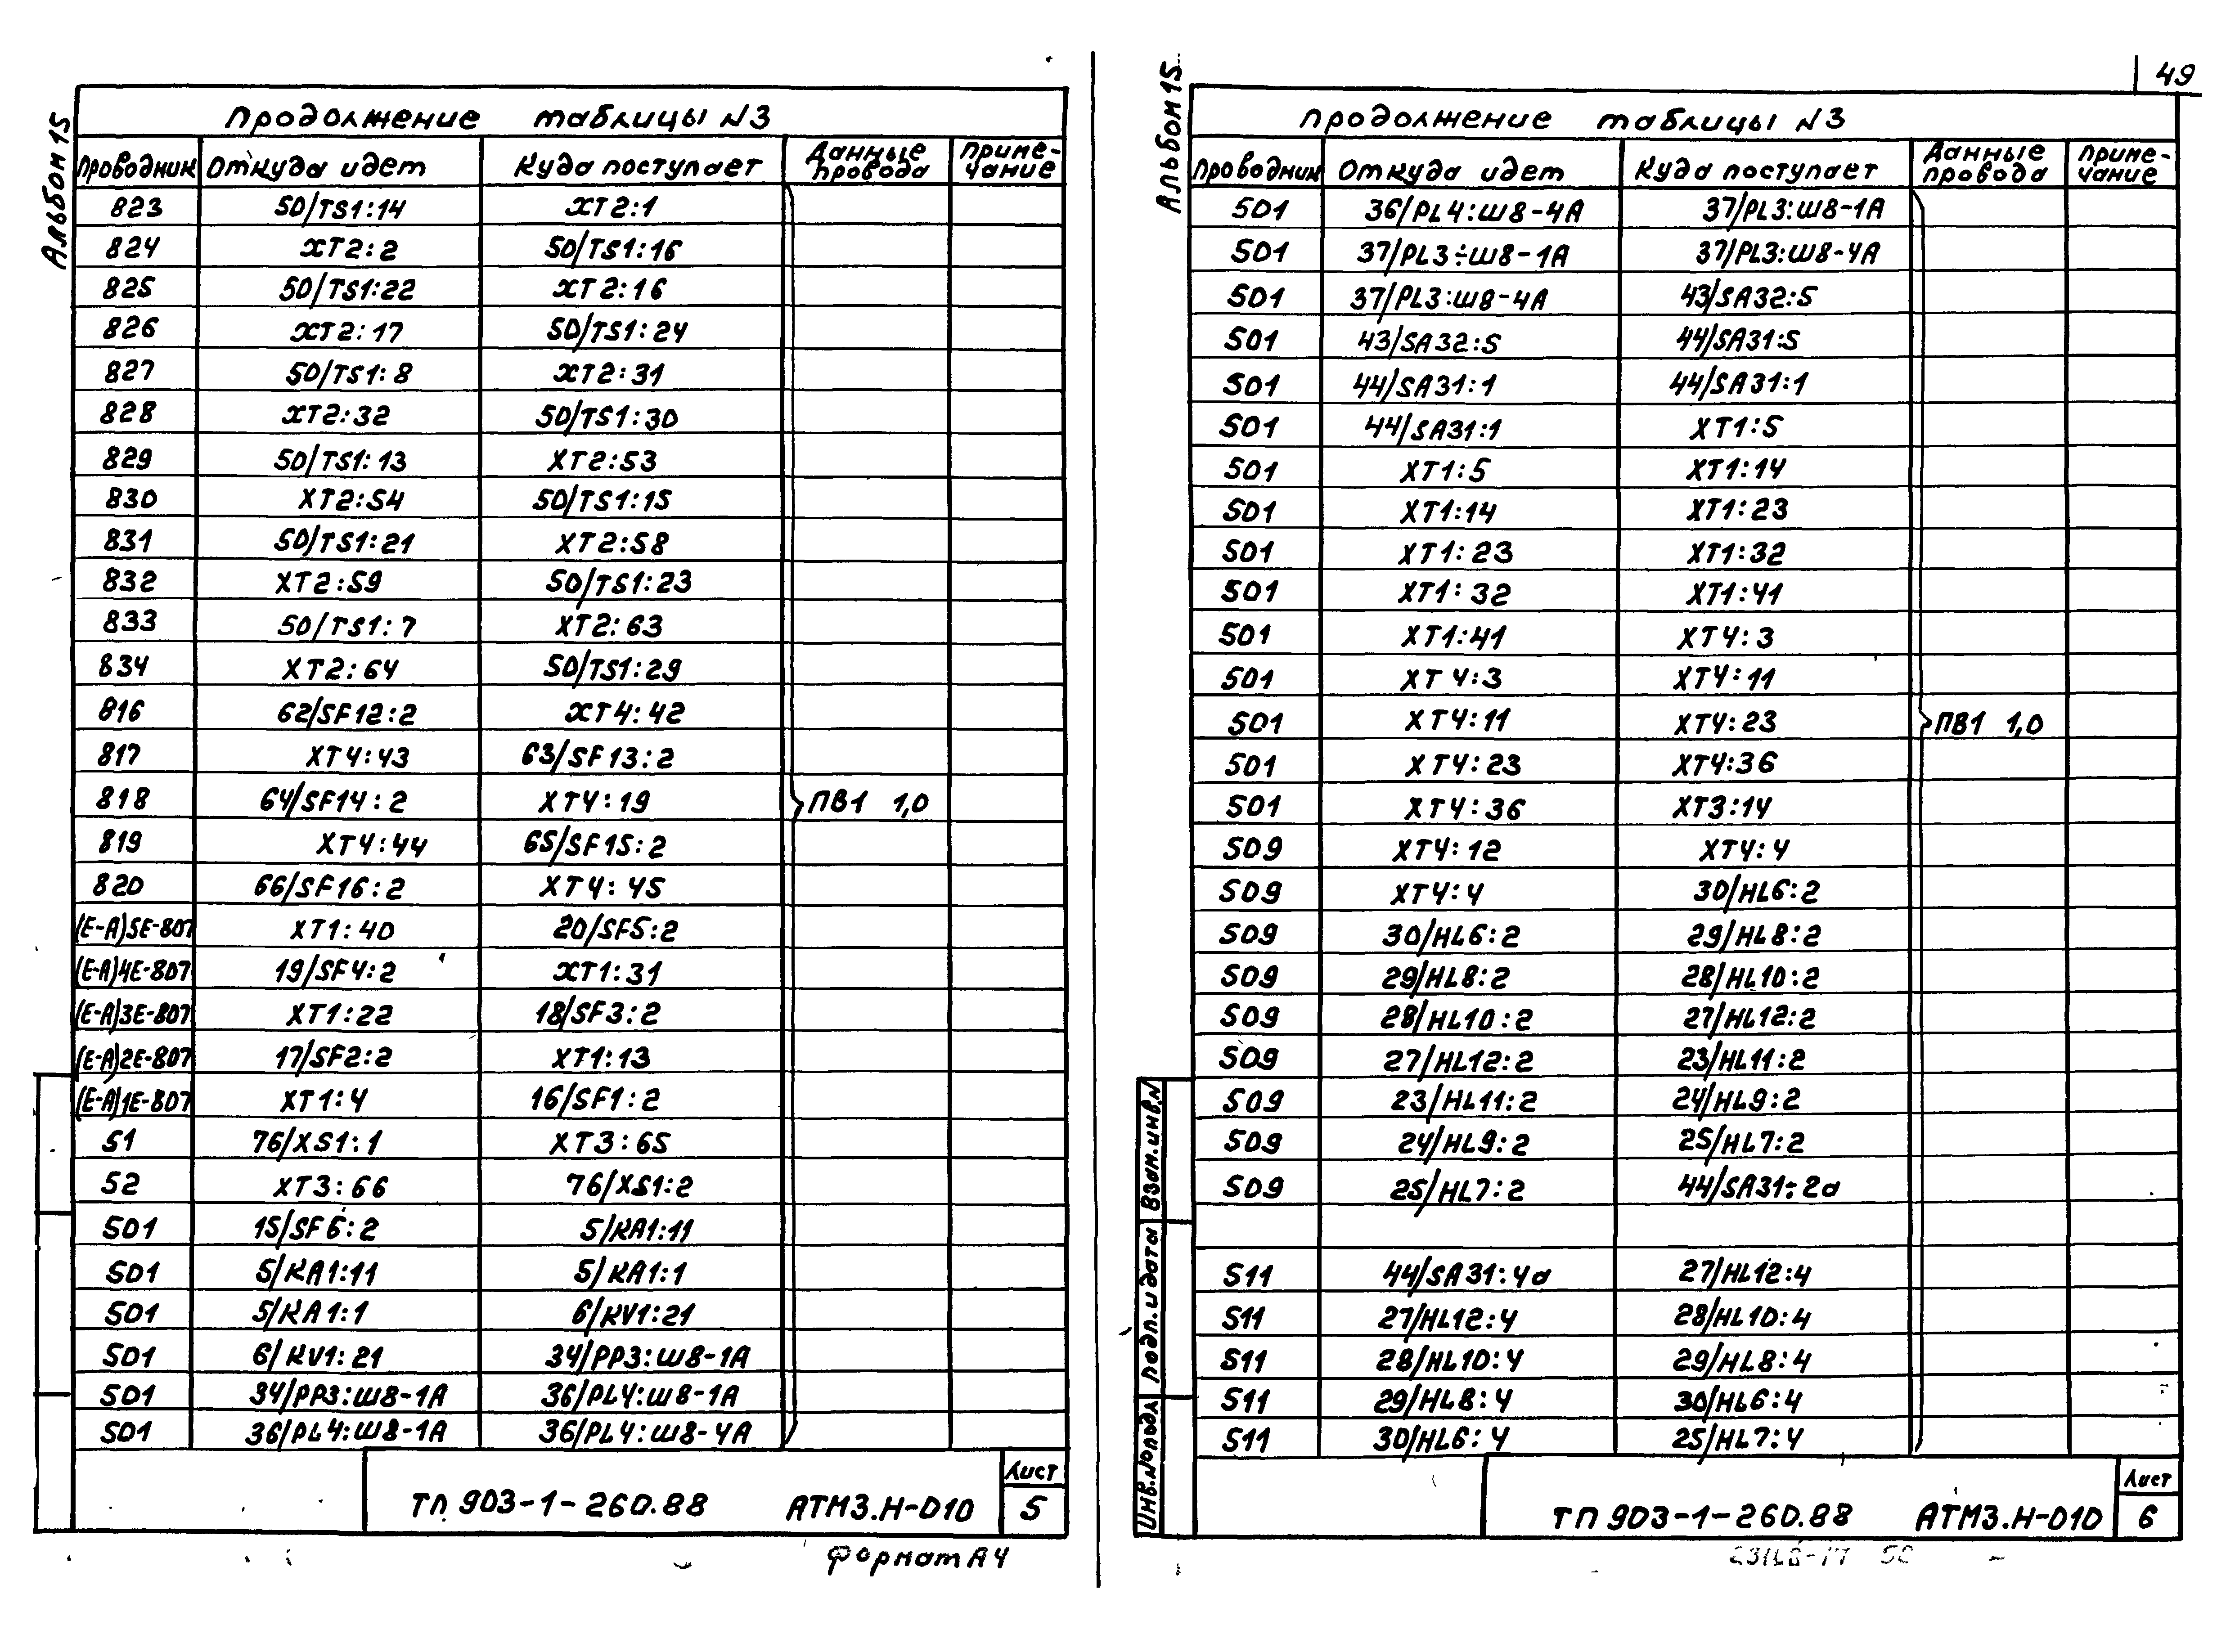 49
Альбом 15
Продолжение таблицы N3
Проводник Откуда идет Куда поступает Данные провода Примечание
823 50/TS1:14 XT2:1
824 XT2:2 50/TS1:16
825 50/TS1:22 XT2:16
826 XT2:17 50/TS1:24
827 50/TS1:8 XT2:31
828 XT2:32 50/TS1:30
829 50/TS1:13 XT2:53
830 XT2:54 50/TS1:15
831 50/TS1:21 XT2:58
832 XT2:59 50/TS1:23
833 50/TS1:7 XT2:63
834 XT2:64 50/TS1:29
816 62/SF12:2 XT4:42
817 XT4:43 63/SF13:2
818 64/SF14:2 XT4:19 ПВ1 1,0
819 XT4:44 65/SF15:2
820 66/SF16:2 XT4:45
(E-A)5E-807 XT1:40 20/SF5:2
(E-A)4E-807 19/SF4:2 XT1:31
(E-A)3E-807 XT1:22 18/SF3:2
(E-A)2E-807 17/SF2:2 XT1:13
(E-A)1E-807 XT1:4 16/SF1:2
51 76/XS1:1 XT3:65
52 XT3:66 76/XS1:2
501 15/SF6:2 5/KA1:11
501 5/KA1:11 5/KA1:1
501 5/KA1:1 6/KV1:21
501 6/KV1:21 34/PP3:Ш8-1А
501 34/PP3:Ш8-1А 36/PL4:Ш8-1А
501 36/PL4:Ш8-1А 36/PL4:Ш8-4А
ТП 903-1-260.88 АТМ3.Н-010 Лист 5
Формат А4
Альбом 15
Продолжение таблицы N3
Проводник Откуда идет Куда поступает Данные провода Примечание
501 36/PL4:Ш8-4А 37/PL3:Ш8-1А
501 37/PL3÷Ш8-1А 37/PL3:Ш8-4А
501 37/PL3:Ш8-4А 43/SA32:5
501 43/SA32:5 44/SA31:5
501 44/SA31:1 44/SA31:1
501 44/SA31:1 XT1:5
501 XT1:5 XT1:14
501 XT1:14 XT1:23
501 XT1:23 XT1:32
501 XT1:32 XT1:41
501 XT1:41 XT4:3
501 XT4:3 XT4:11
501 XT4:11 XT4:23 ПВ1 1,0
501 XT4:23 XT4:36
501 XT4:36 XT3:14
509 XT4:12 XT4:4
509 XT4:4 30/HL6:2
509 30/HL6:2 29/HL8:2
509 29/HL8:2 28/HL10:2
509 28/HL10:2 27/HL12:2
509 27/HL12:2 23/HL11:2
509 23/HL11:2 24/HL9:2
509 24/HL9:2 25/HL7:2
509 25/HL7:2 44/SA31÷2а
511 44/SA31:4а 27/HL12:4
511 27/HL12:4 28/HL10:4
511 28/HL10:4 29/HL8:4
511 29/HL8:4 30/HL6:4
511 30/HL6:4 25/HL7:4
Взам.инв.N
Подп.и даты
Инв.Nоподл
ТП 903-1-260.88 АТМ3.Н-010 Лист 6